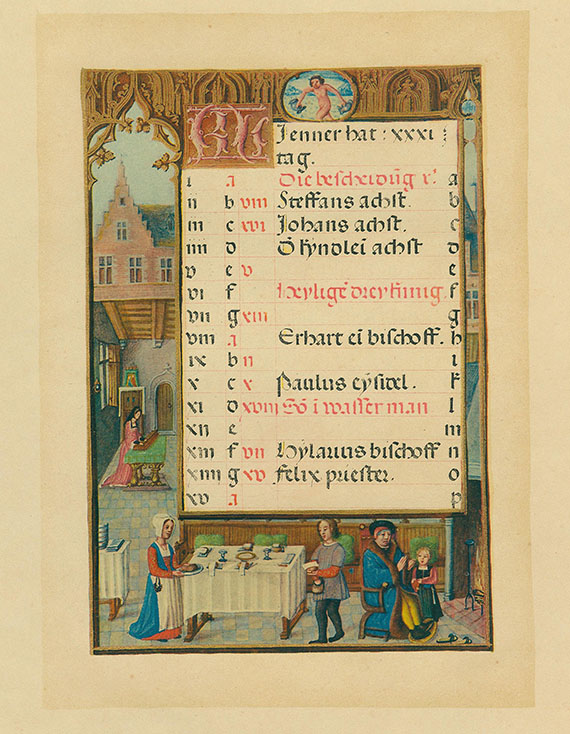 KL Jenner hat : xxxi :
tag.
i a Die bescheidūg x̄. a
ii b viii Steffans achst. b
iii c xvi Johans achst. c
iiii d Ō kyndlei achst d
v e v e
vi f Heylige drey king. f
vii g xiii g
viii a Erhart ei bischoff. h
ix b ii i
x c x Paulus eysidel. k
xi d xviii Sō i wasser man l
xii e m
xiii f vii Hylarius bischoff n
xiiii g xv Felix priester. o
xv a p